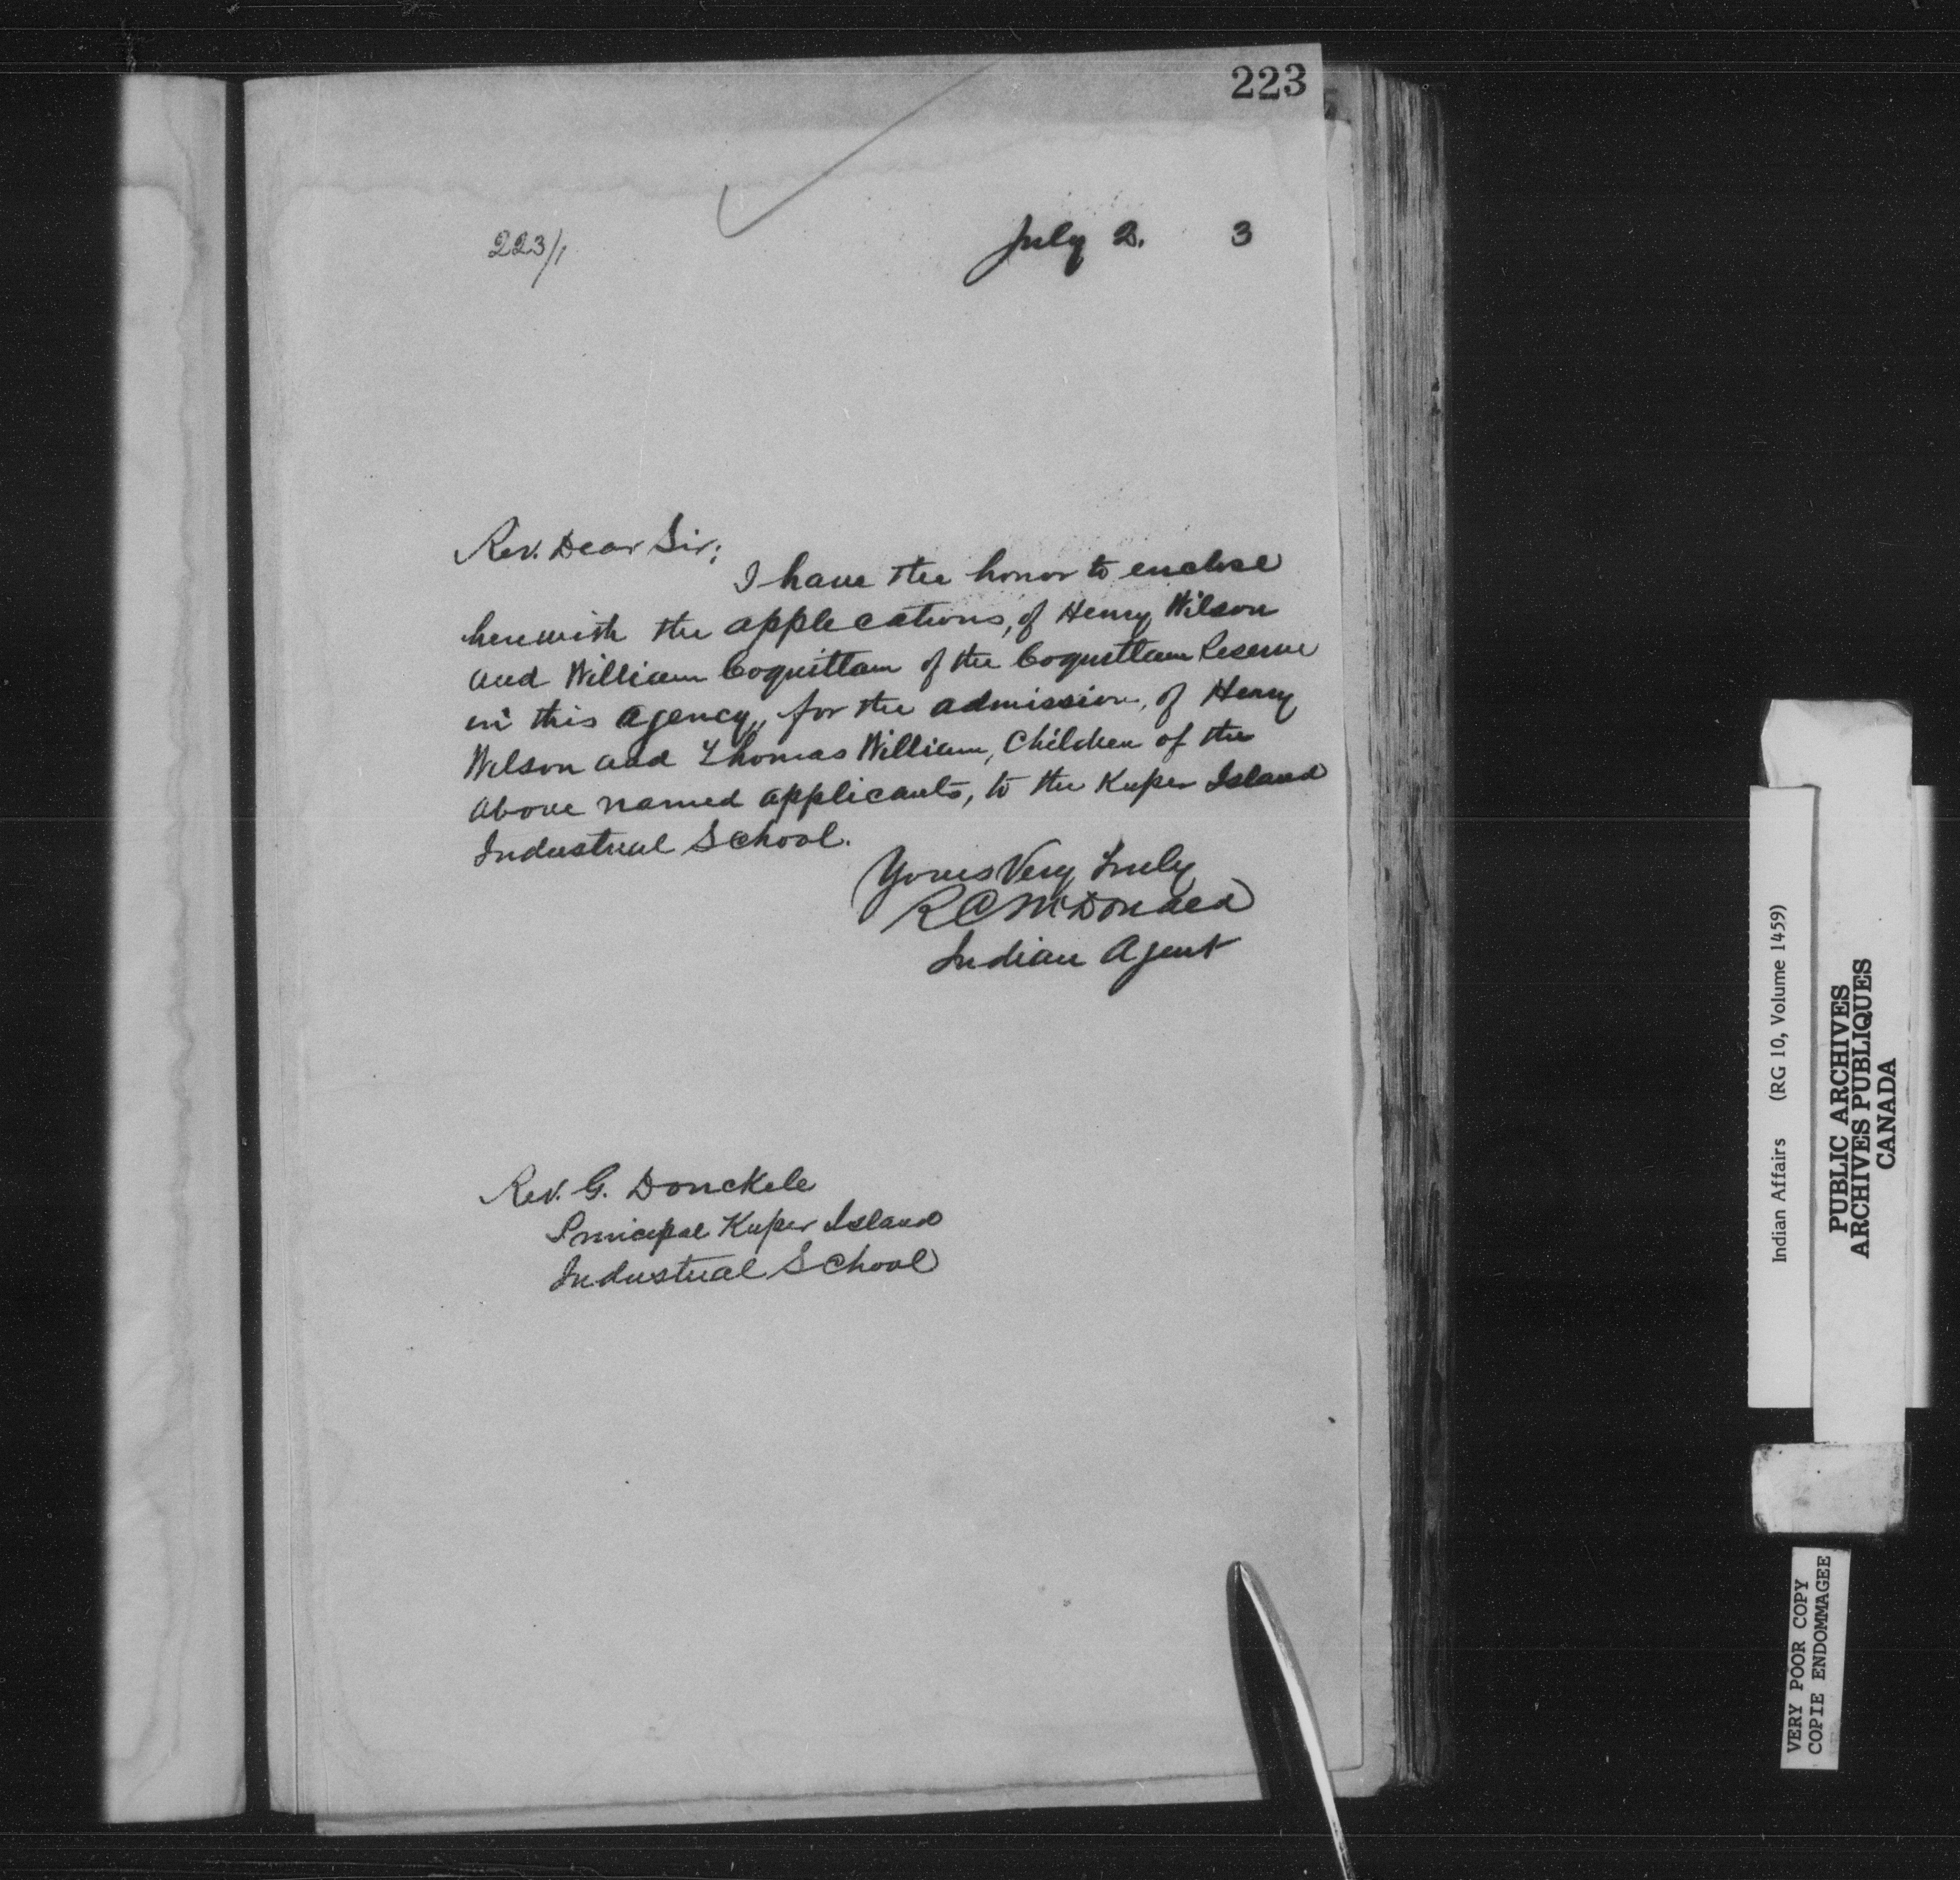 223
223/1
July 2. 3
Rev. Dear Sir;
I have the honor to enclose
herewith the applecations, of Henry Wilson
and William Coquitlam of the Coquitlam Reserve
in this agency, for the admission, of Henry
Wilson and Thomas William, Children of the
above named applicants, to the Kuper Island
Industrial School.
Yours Very Truly
R C McDonald
Indian Agent
Rev. G. Donckele
Principal Kuper Island
Industrial School
Indian Affairs (RG 10, Volume 1459)
PUBLIC ARCHIVES
ARCHIVES PUBLIQUES
CANADA
VERY POOR COPY
COPIE ENDOMMAGEE